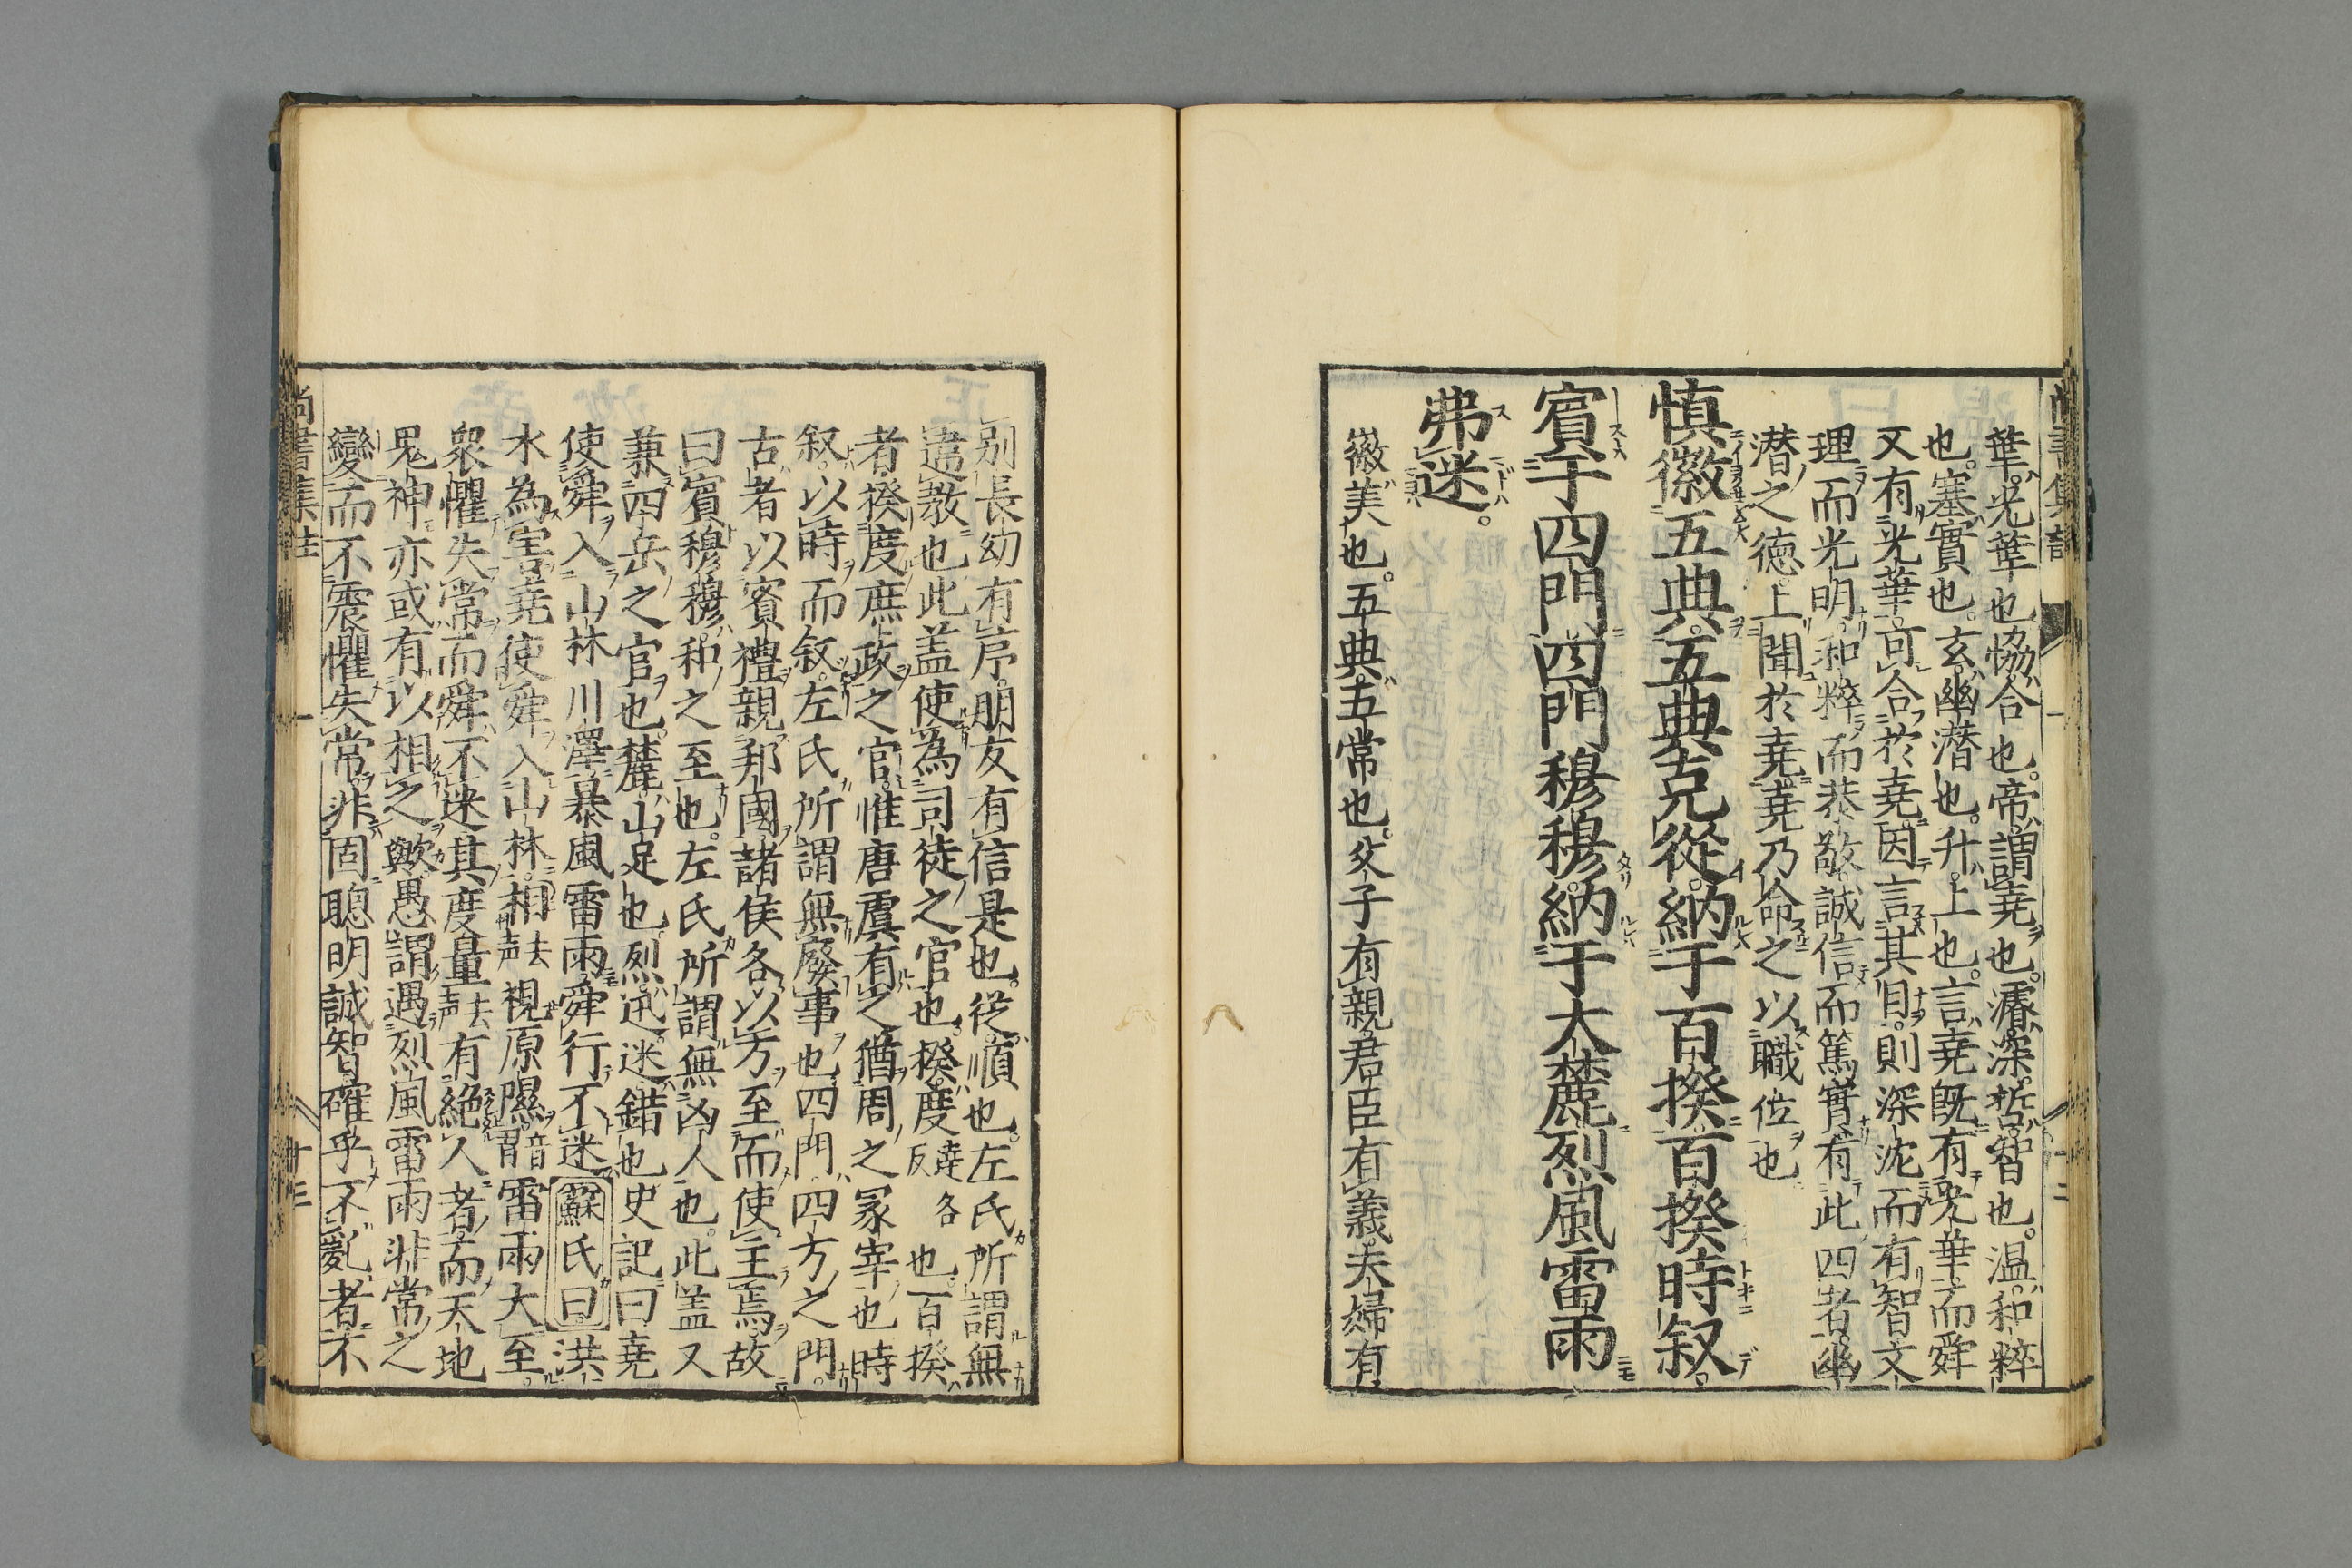 華光華也恊合也帝謂堯也濬深哲智也温和粹
也塞實也玄幽潜也升上也言堯既有光華而舜
又有光華可合於堯因言其目則深沈而有智文
理而光明和粹而恭敬誠信而篤實有此四者幽
潜之徳上聞於堯堯乃命之以職位也
慎徽五典五典克從納于百揆百揆時叙
賓于四門四門穆穆納于大麓烈風雷雨
弗迷
徽美也五典五常也父子有親君臣有義夫婦有
別長幼有序朋友有信是也從順也左氏所謂無
違教也此盖使為司徒之官也揆度也百揆
者揆度庶政之官惟唐虞有之猶周之冢宰也時
叙以時而叙左氏所謂無廢事也四門四方之門
古者以賓禮親邦國諸侯各以方至而使主焉故
曰賓穆穆和之至也左氏所謂無凶人也此盖又
兼四岳之官也麓山足也烈迅迷錯也史記曰堯
使舜入山林川澤暴風雷雨舜行不迷蘇氏曰洪
水為害堯使舜入山林相去声視原隰雷雨大至
衆懼失常而舜不迷其度量去声有絶人者而天地
鬼神亦或有以相之歟愚謂遇烈風雷雨非常之
變而不震懼失常非固聰明誠智確乎不亂者不
尚書集註 一 十三